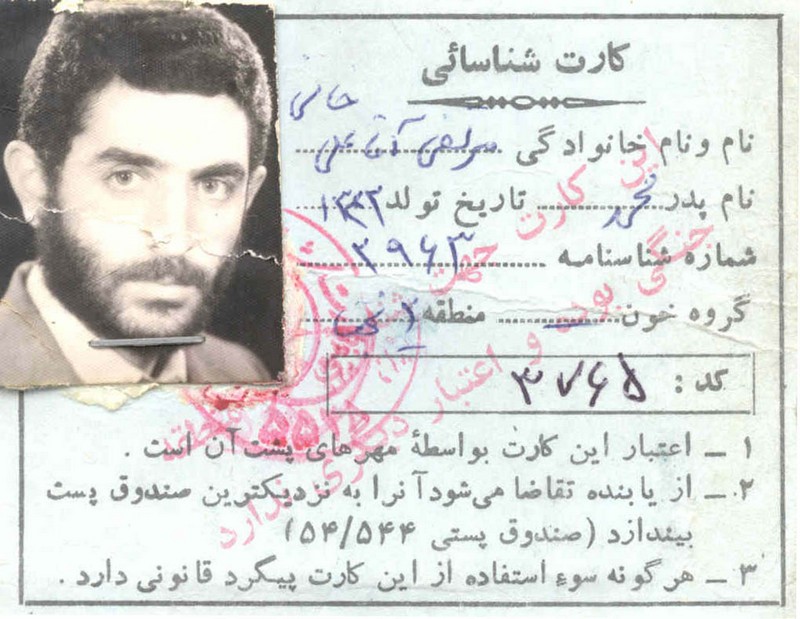 کارت شناسائی
نام و نام خانوادگی
نام پدر محمد تاریخ تولد ۱۳۳۲
شماره شناسنامه ۳۹۶۳
گروه خون منطقه ۲
کد : ۳۷۶۵
۱ ـ اعتبار این کارت بواسطهٔ مهرهای پشت آن است .
۲ ـ از یابنده تقاضا می‌شود آنرا به نزدیکترین صندوق پست
بیندازد (صندوق پستی ۵۴/۵۴۴)
۳ ـ هرگونه سوء استفاده از این کارت پیگرد قانونی دارد .
این کارت جهت
جنگی بوده و اعتبار دیگری ندارد